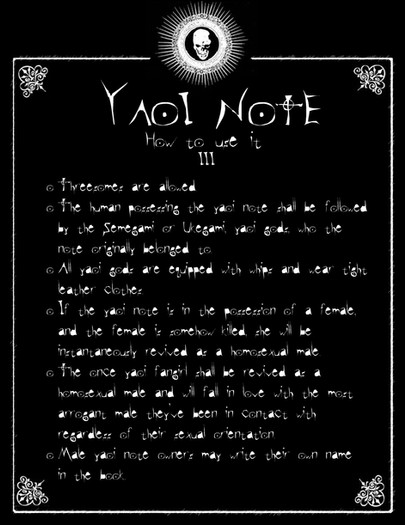 Yaoi Note
How to use it
III
o Threesomes are allowed
o The human possessing the yaoi note shall be followed
by the Semegami or Ukegami, yaoi gods, who the
note originally belonged to.
o All yaoi gods are equipped with whips and wear tight
leather clothes.
o If the yaoi note is in the possession of a female,
and the female is somehow killed, she will be
instantaneously revived as a homosexual male
o The once yaoi fangirl shall be revived as a
homosexual male and will fall in love with the most
arrogant male they've been in contact with
regardless of their sexual orientation
o Male yaoi note owners may write their own name
in the book.